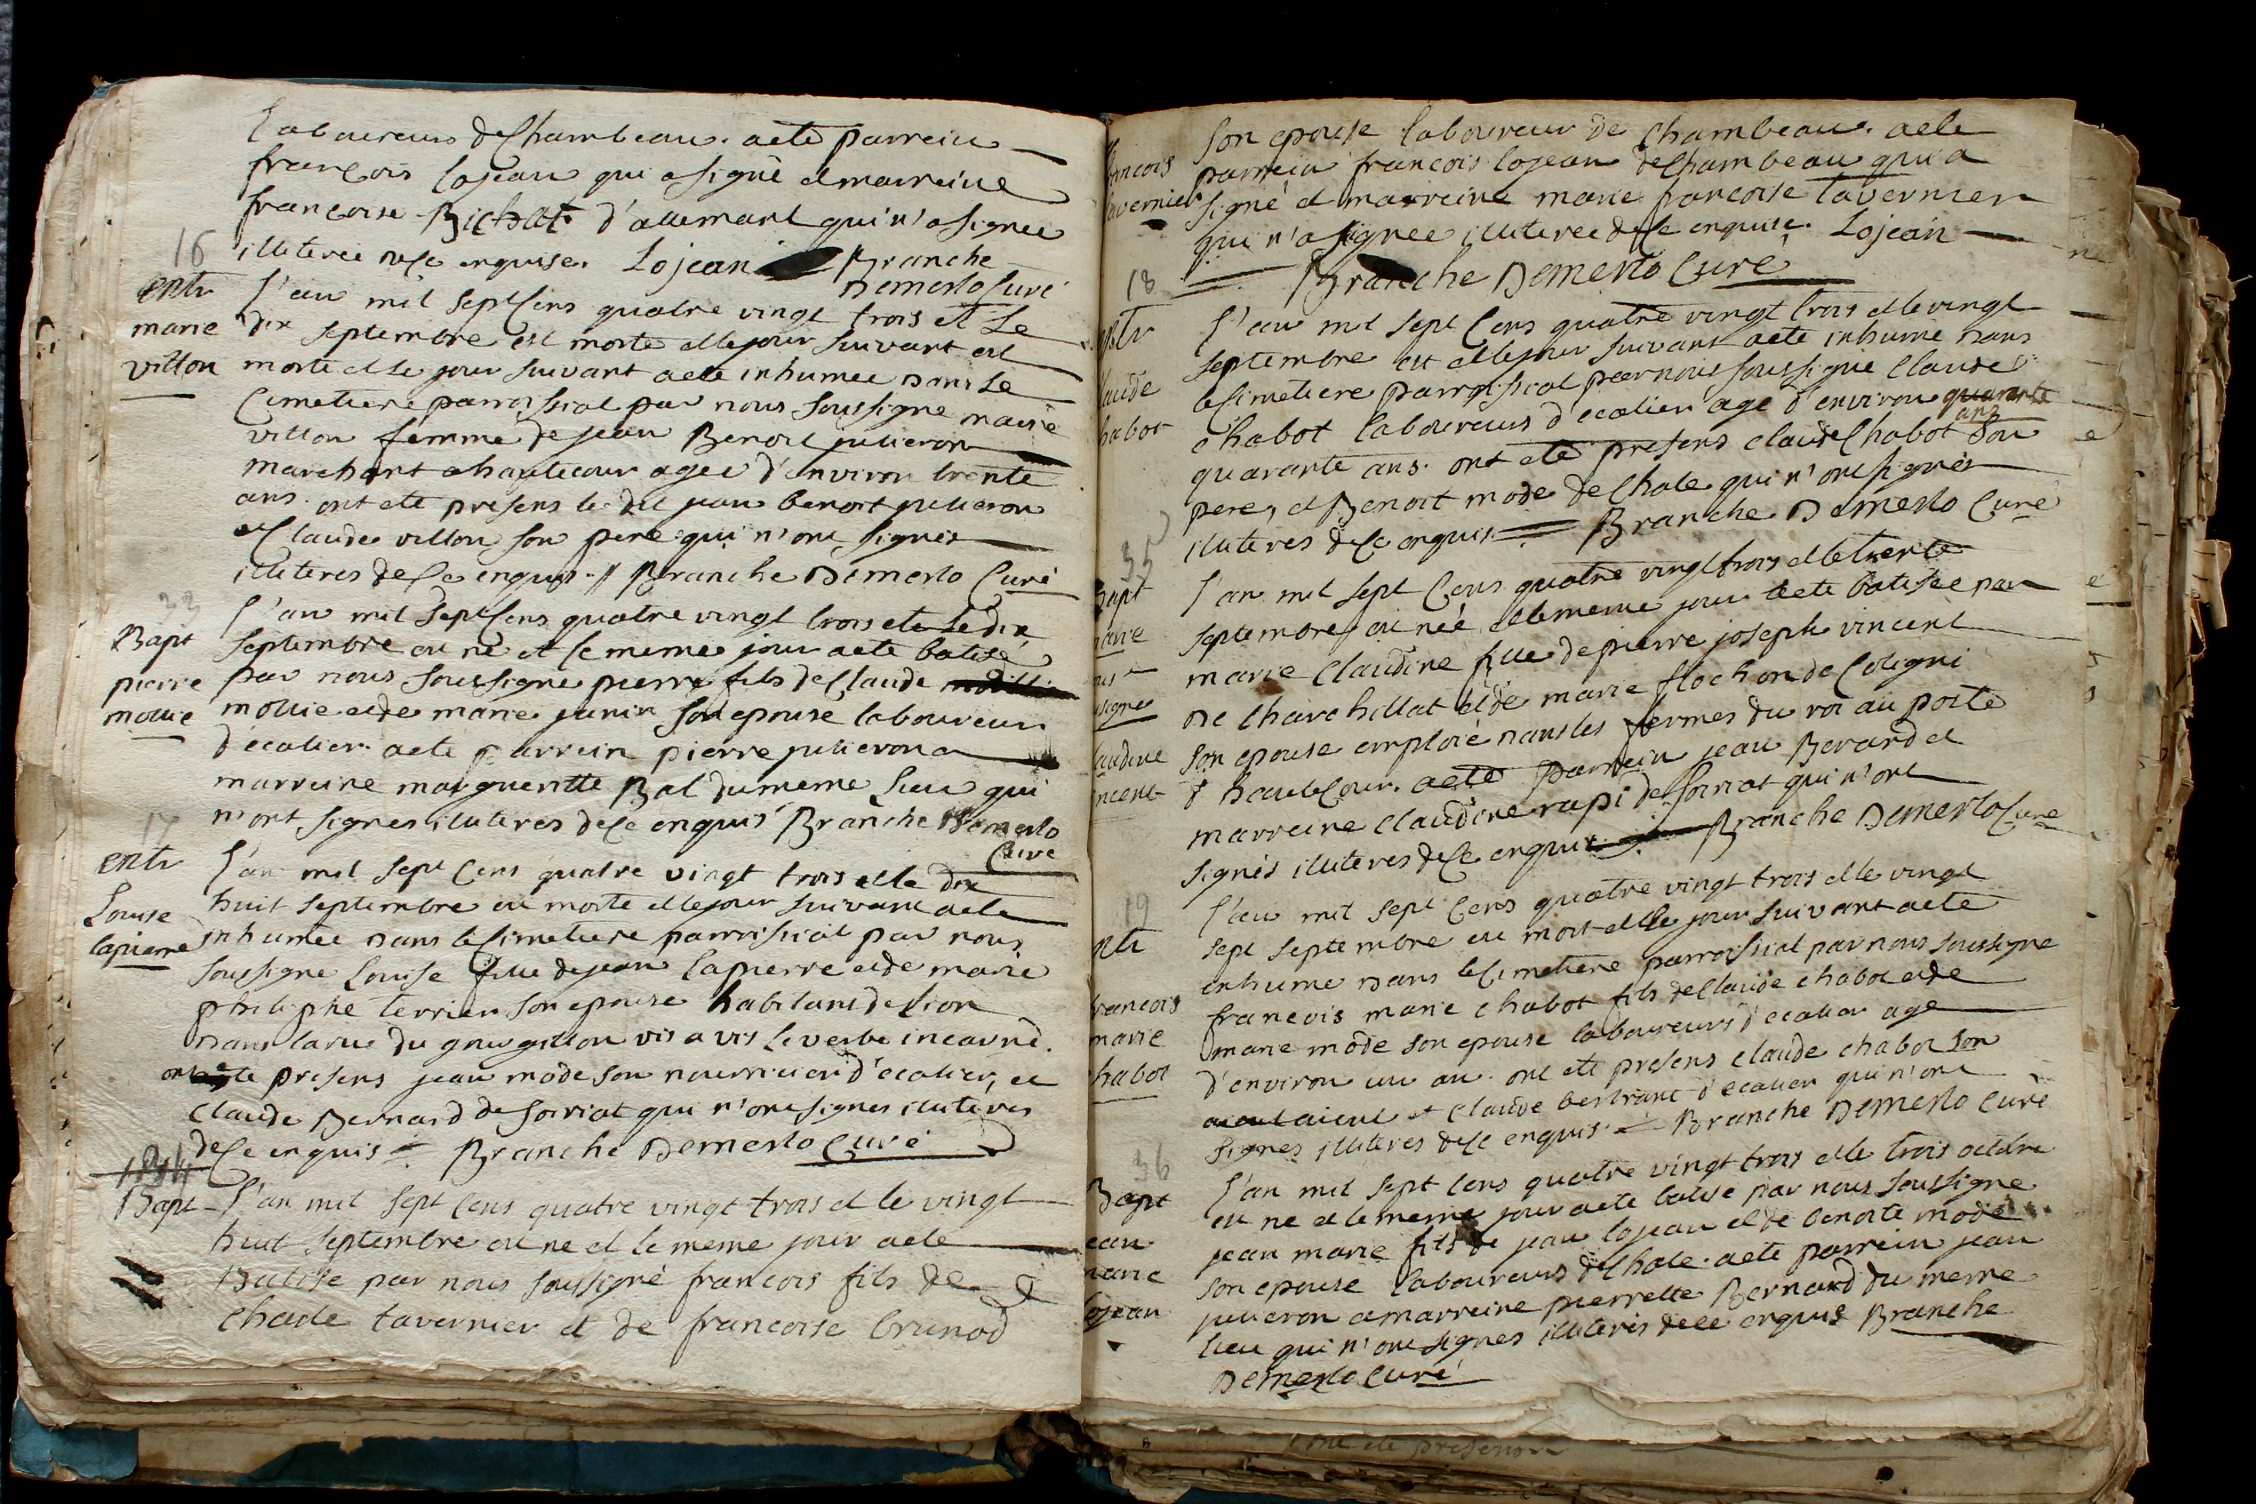 laboureurs de Chambeau. a eté parrein
francois Lojean qui a signé et marreine
francoise Bichat d'allemant qui n'a signee
illiterée de ce enquise. Lojean Branche
Demerlo Curé
16
entr
marie
villon
L'an mil sept Cens quatre vingt trois et le
dix septembre est morte et le jour suivant est
morte et le jour suivant a ete inhumée dans le
Cimetiere parroissial par nous soussigne marie
villon femme de jean Benoit julieron
marchant a hautecour agée d'environ trente
ans. ont ete presens le dit jean benoit julieron
et Claude villon son pere qui n'ont signés
illiteres de ce enquis. // Branche Demerlo Curé
33
Bapt
pierre
mollie
L'an mil sept Cens quatre vingt trois et le dix
septembre est né et le meme jour a ete batisé
par nous soussigne pierre fils de Claude
mollie et de marie junin son epouse laboureur
d'ecotier. a ete parrein pierre julieron a
marreine margueritte Bal du meme lieu qui
n'ont signes illiteres de ce enquis Branche Demerlo
Curé
17
entr
Louise
lapierre
L'an mil sept Cens quatre vingt trois et le dix
huit septembre est morte et le jour suivant a ete
inhumée dans le Cimetiere parroissial par nous
soussigne Louise fille de jean lapierre et de marie
philiphe terrier son epouse habitans de lion
dans la rue du gourguillon vis a vis le verbe incarné.
ont ete presens jean mode son nourricier d'ecotier, et
claude Bernard de soiriat qui n'ont signes illiteres
de ce enquis = Branche Demerlo Curé
34
Bapt
L'an mil sept Cens quatre vingt trois et le vingt
huit septembre est né et le meme jour a ete
Batise par nous soussigné francois fils de
charle tavernier et de francoise brunod
francois
tavernier
son epouse laboureur de Chambeau. a ete
parrein francois lojean de Chambeau qui a
signé et marreine marie francoise tavernier
qui n'a signee illiteree de ce enquise. Lojean
Branche Demerlo Curé
18
entr
laude
habot
L'an mil sept Cens quatre vingt trois et le vingt
septembre est et le jour suivant a ete inhume dans
le Cimetiere parroissial par nous soussigné claude
chabot laboureurs d'ecotier age d'environ quarante
ans
quarante ans. ont ete presens claude Chabot son
pere, et Benoit mode de Chale qui n'ont signés
illiteres de ce enquis = Branche Demerlo Curé
35
Bapt
marie
signe
laudine
incent
L'an mil sept Cens quatre vingt trois et le trente
septembre est née et le meme jour a ete batisée par
marie Claudine fille de pierre joseph vincent
de charchillat et de marie flochon de Coligni
son epouse emploié dans les fermes du roi au poste
d'hautecour. a ete parrein jean Berard et
marreine claudine rapi de soiriat qui n'ont
signés illiteres de ce enquis Branche Demerlo Cure
19
ntr
francois
marie
habot
L'an mil sept Cens quatre vingt trois et le vingt
sept septembre est mort et le jour suivant a ete
inhume dans le Cimetiere parroissial par nous soussigne
francois marie chabot fils de Claude chabot et de
marie mode son epouse laboureurs d'ecotier age
d'environ un an. ont ete presens claude chabot son
aieul et Claude bertrant d'ecotier qui n'ont
signes illiteres de ce enquis. = Branche Demerlo Curé
36
Bapt
ean
marie
lojean
L'an mil sept Cens quatre vingt trois et le trois octobre
est ne et le meme jour a ete batise par nous soussigne
jean marie fils de jean lojean et de benoite mode
son epouse laboureurs de Chale. a ete parrein jean
julieron a marreine pierrette Bernard du meme
lieu qui n'ont signes illiteres de ce enquis Branche
Demerlo Curé
ont ete presens